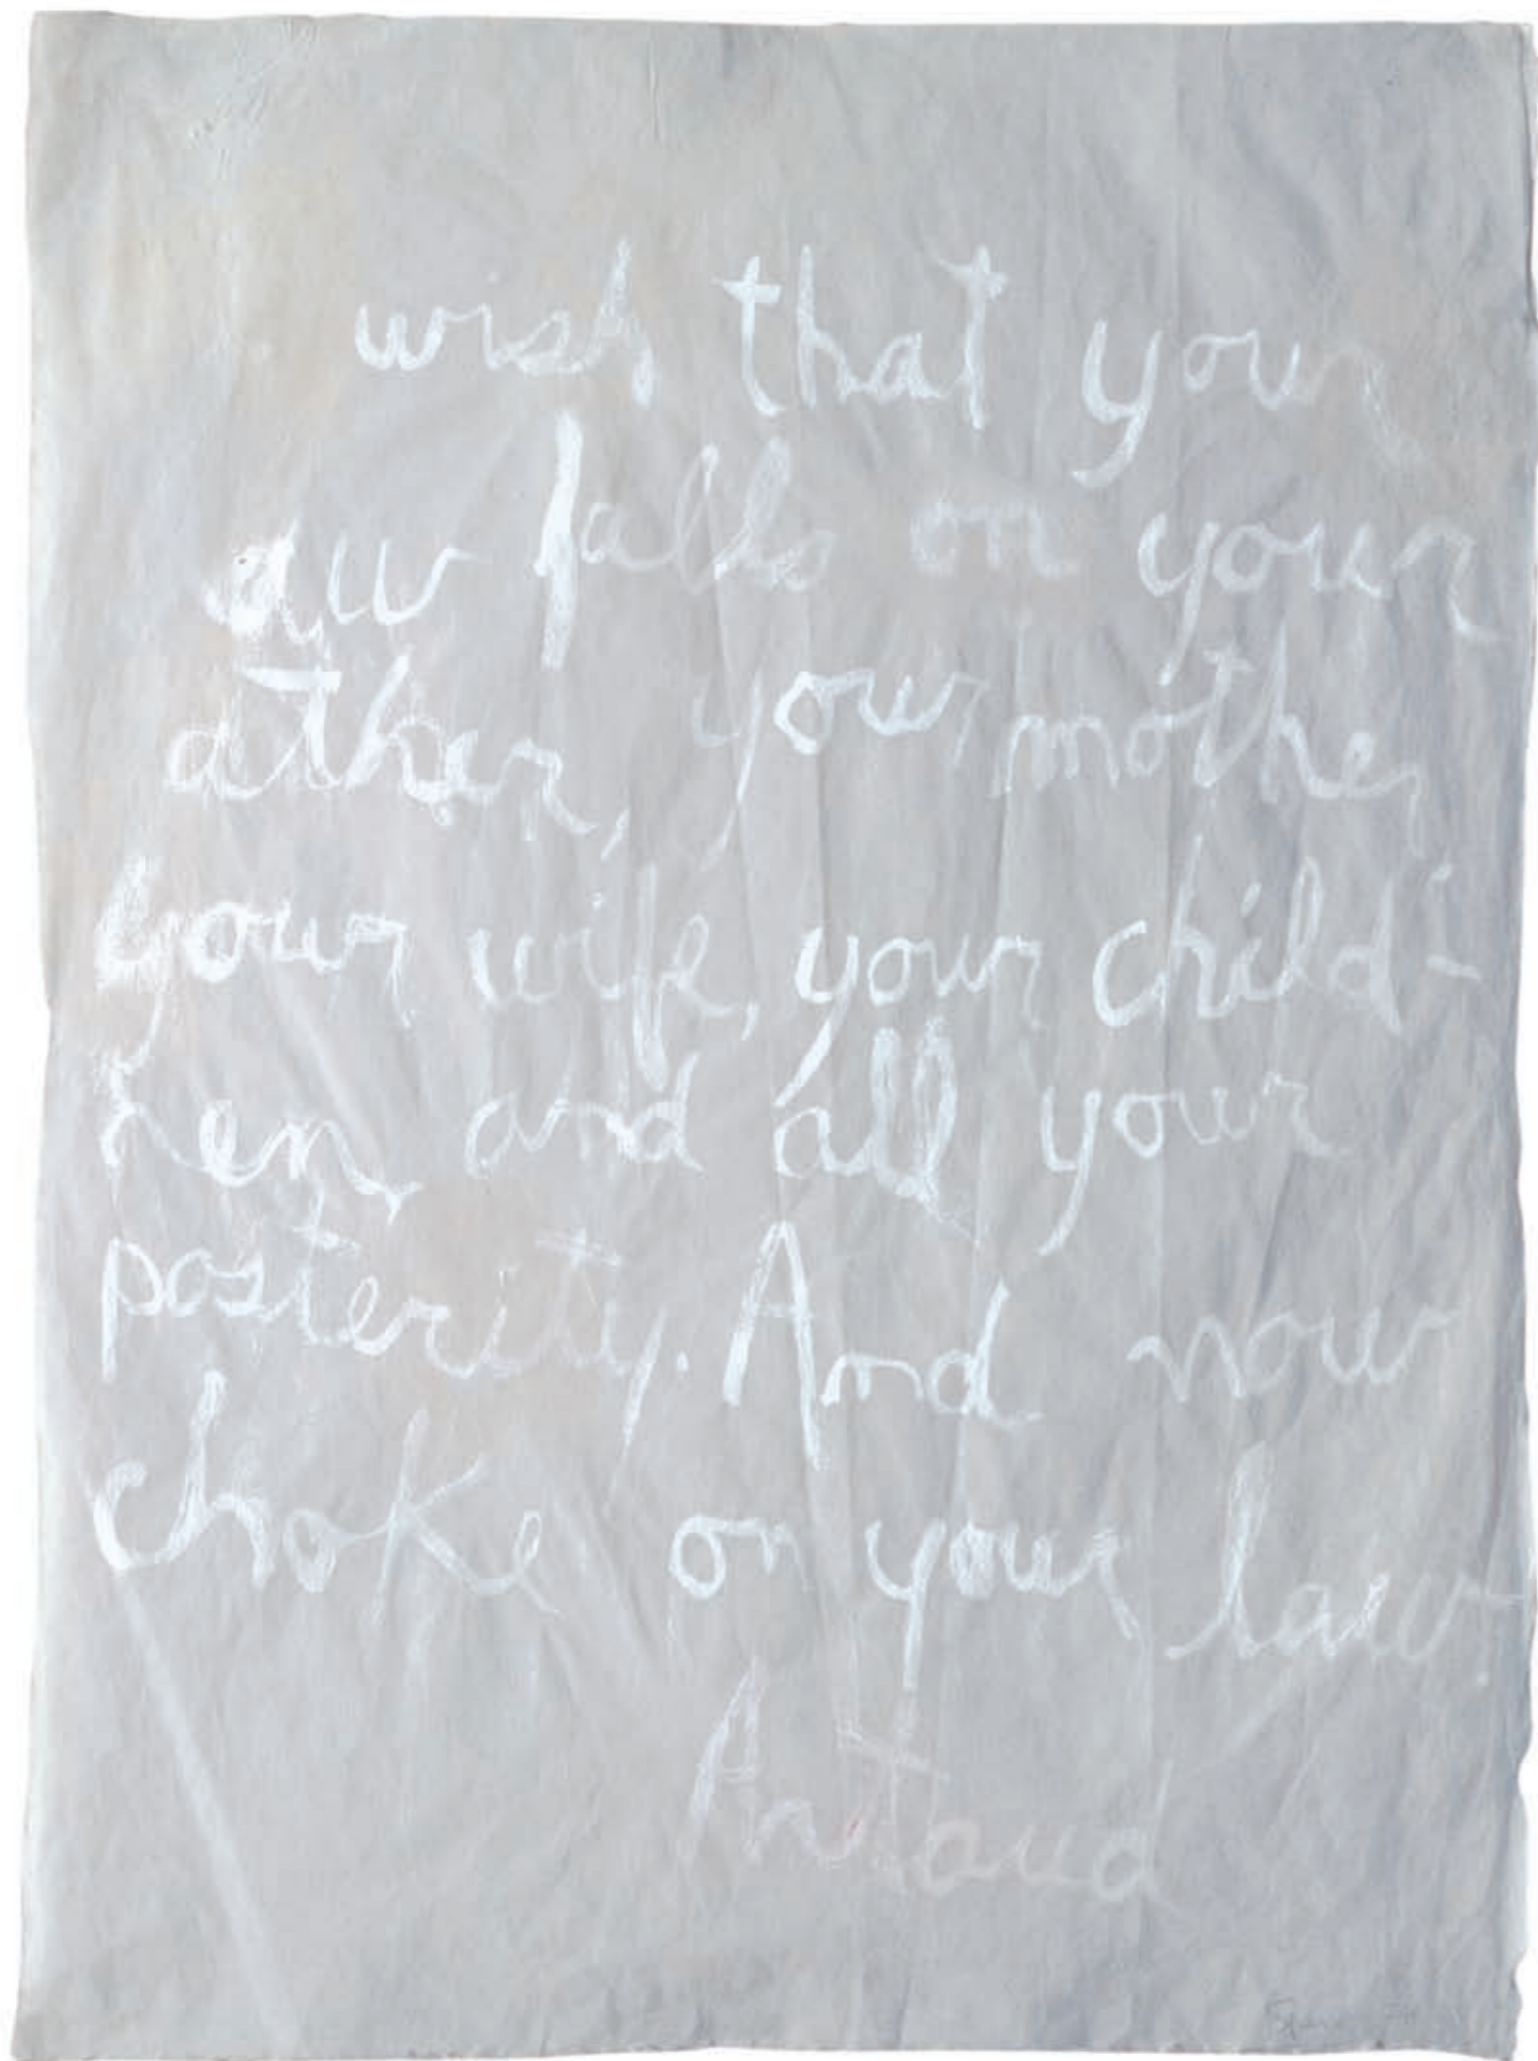 wish that your
aw falls on your
ather, your mother
your wife, your child-
ren and all your
posterity. And now
choke on your law.
Artaud